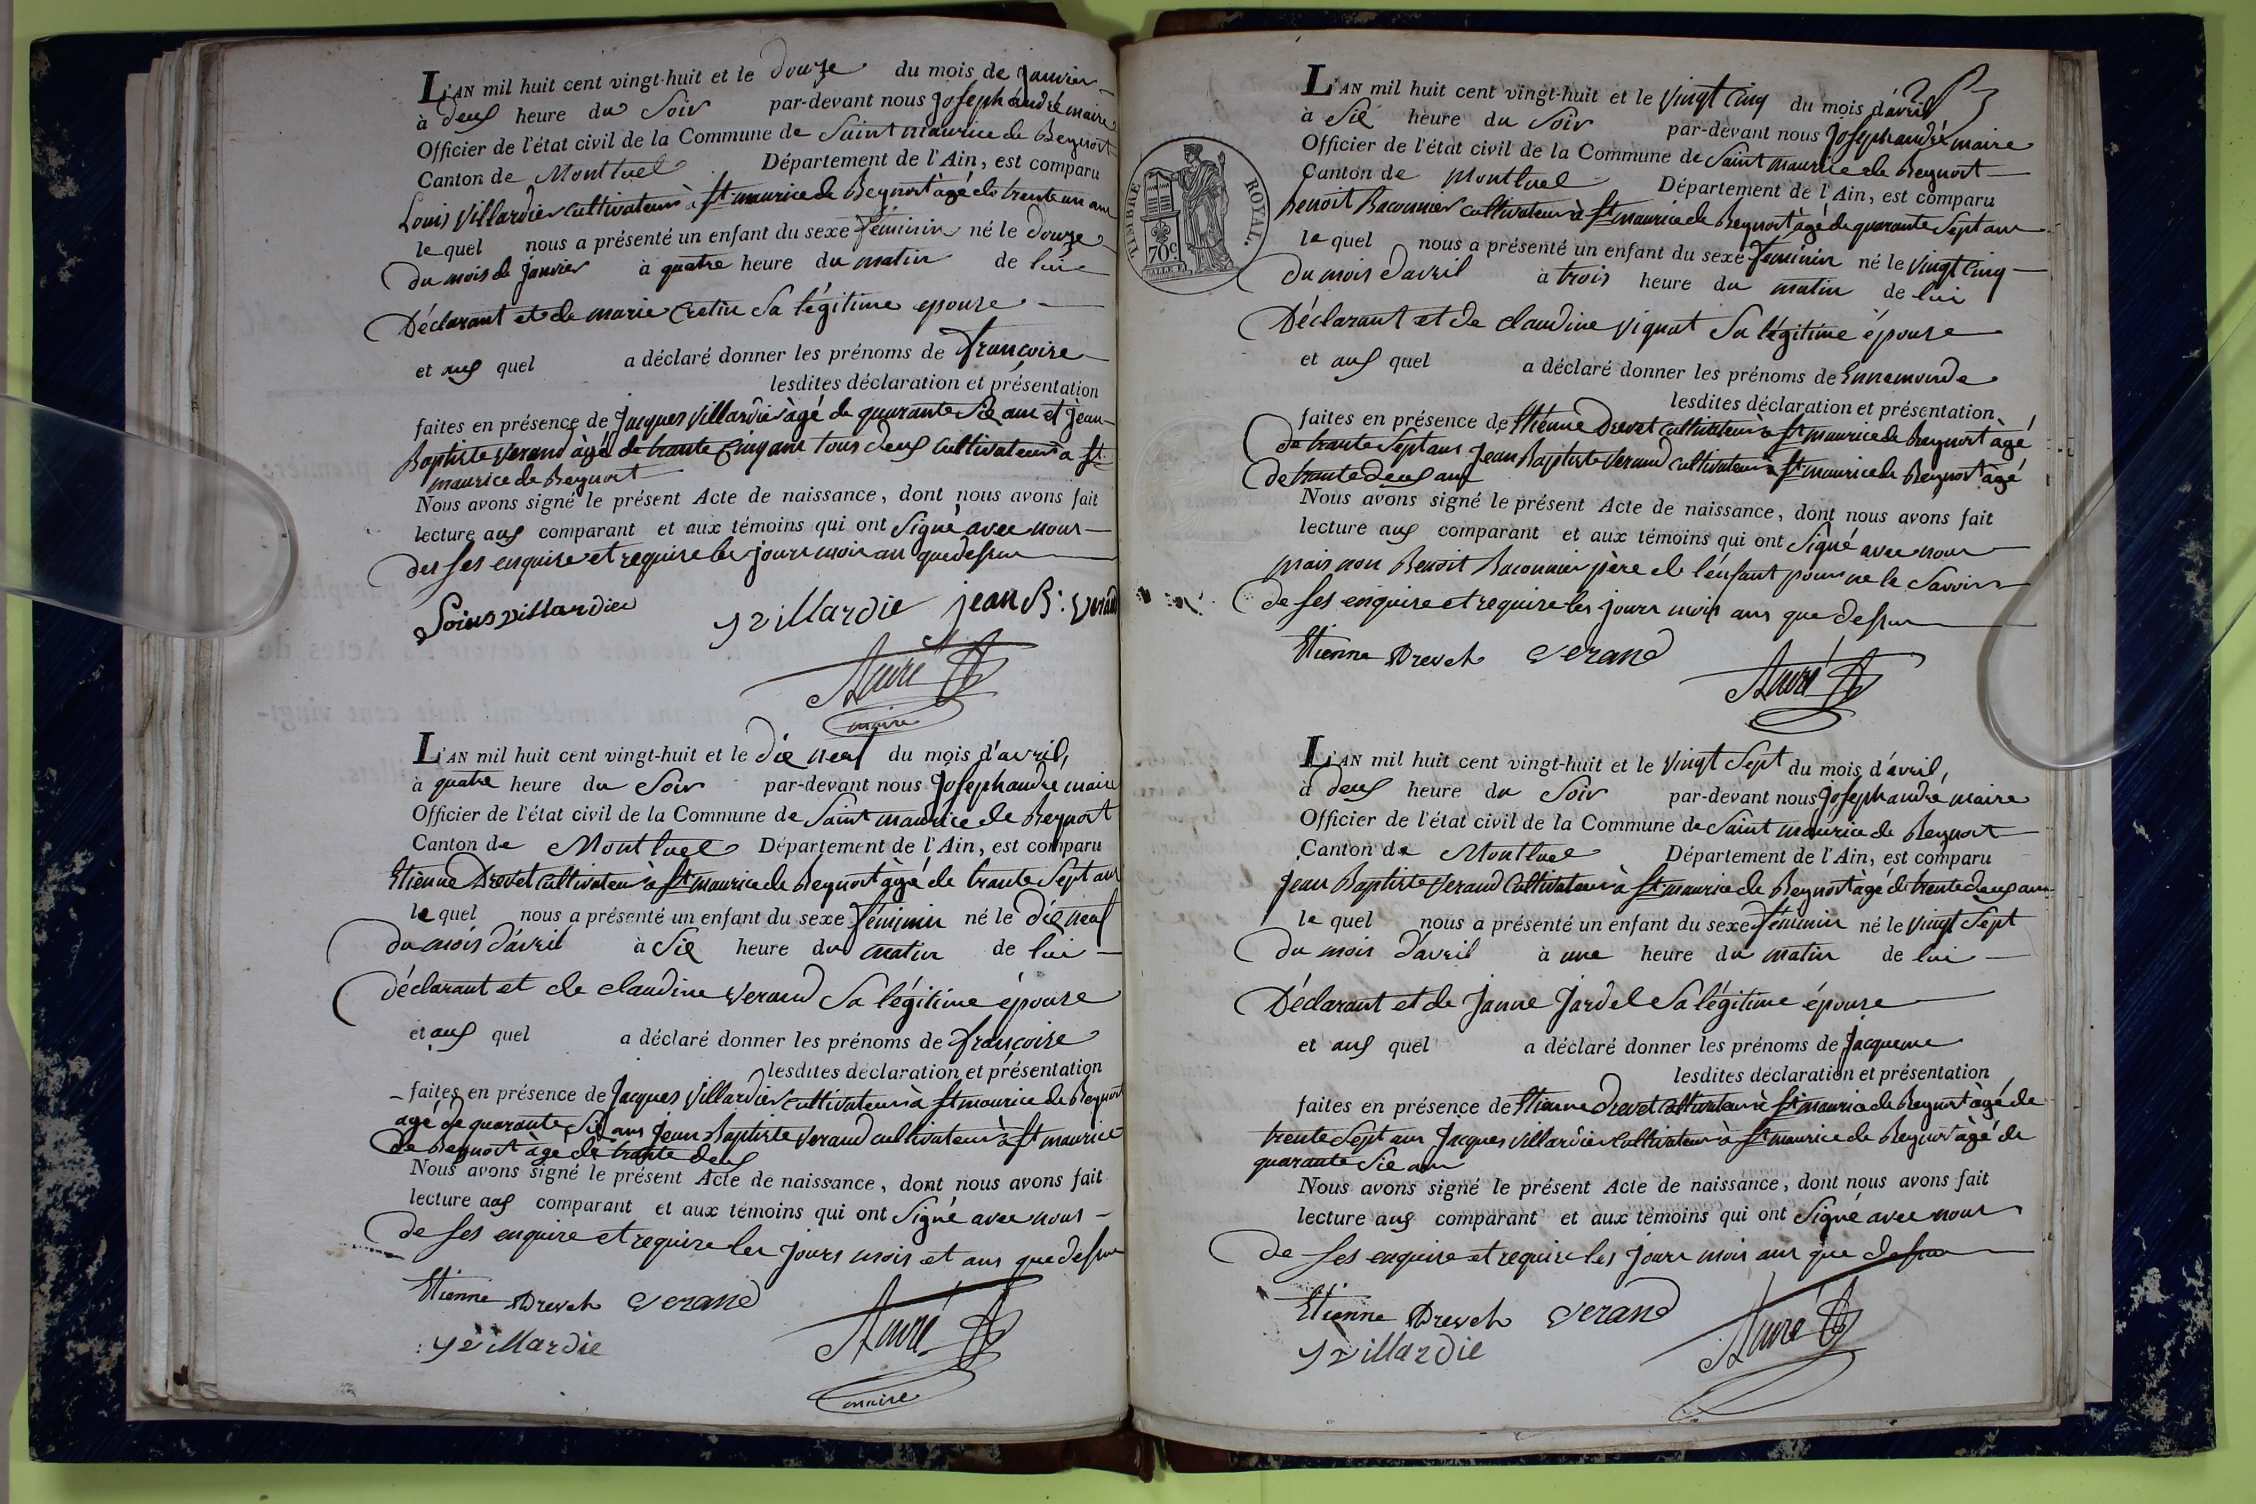 L'AN mil huit cent vingt-huit et le douze du mois de janvier
à deux heure du soir par-devant nous joseph andré maire
Officier de l'état civil de la Commune de Saint maurice de Beynost
Canton de Montluel Département de l'Ain, est comparu
Louis Villardier cultivateur à St maurice de Beynost âgé de trente un ans
le quel nous a présenté un enfant du sexe féminin né le douze
du mois de janvier à quatre heure du matin de lui
Déclarant et de marie cretin sa légitime epouse
et auq quel a déclaré donner les prénoms de françoise
lesdites déclaration et présentation
faites en présence de jacques villardier âgé de quarante six ans et jean
Baptiste verand âgé de trante cinq ans tous deux cultivateurs à St
maurice de Beynost
Nous avons signé le présent Acte de naissance, dont nous avons fait
lecture auq comparant et aux témoins qui ont signé avec nous
des ses enquise et requise les jours mois an que dessus
Louis villardier
J villardie jean B. verand
André
maire
L'AN mil huit cent vingt-huit et le dix neuf du mois d'avril,
à quatre heure du soir par-devant nous joseph andré maire
Officier de l'état civil de la Commune de Saint maurice de Beynost
Canton de Montluel Département de l'Ain, est comparu
Etienne Drevet cultivateur à St maurice de Beynost âgé de trante sept ans
le quel nous a présenté un enfant du sexe féminin né le dix neuf
du mois d'avril à six heure du matin de lui
déclarant et de claudine verand sa légitime épouse
et auq quel a déclaré donner les prénoms de françoise
lesdites déclaration et présentation
faites en présence de jacques villardier cultivateur à St maurice de Beynost
agé de quarante six ans jean Baptiste verand cultivateur à St maurice
de Beynost âge de trante deux
Nous avons signé le présent Acte de naissance, dont nous avons fait
lecture auq comparant et aux témoins qui ont signé avec nous
de ses enquise et requise les jours mois et ans que dessus
Etienne Drevet verand
J villardie
André
maire
L'AN mil huit cent vingt-huit et le vingt cinq du mois d'avril
à six heure du soir par-devant nous joseph andré maire
Officier de l'état civil de la Commune de Saint maurice de Beynost
Canton de Montluel Département de l'Ain, est comparu
Benoit Baconnier cultivateur à St maurice de Beynost âgé de quarante sept ans
le quel nous a présenté un enfant du sexe féminin né le vingt cinq
du mois d'avril à trois heure du matin de lui
Déclarant et de claudine vignat sa légitime épouse
et auq quel a déclaré donner les prénoms de Ennemonde
lesdites déclaration et présentation
faites en présence de Etienne Drevet cultivateur à St maurice de Beynost âgé
de trante sept ans jean Baptiste verand cultivateur à St maurice de Beynost âgé
de trante deux ans
Nous avons signé le présent Acte de naissance, dont nous avons fait
lecture auq comparant et aux témoins qui ont signé avec nous
mais non Benoit Baconnier père de l'enfant pour ne le savoir
de ses enquise et requise les jours mois ans que dessus
Etienne Drevet verand
André
TIMBRE ROYAL.
70c
L'AN mil huit cent vingt-huit et le vingt sept du mois d'avril,
à deux heure du soir par-devant nous joseph andré maire
Officier de l'état civil de la Commune de Saint maurice de Beynost
Canton de Montluel Département de l'Ain, est comparu
jean Baptiste verand cultivateur à St maurice de Beynost âgé de trente deux ans
le quel nous a présenté un enfant du sexe féminin né le vingt sept
du mois d'avril à une heure du matin de lui
Déclarant et de janne jardel sa légitime épouse
et auq quel a déclaré donner les prénoms de jacqueme
lesdites déclaration et présentation
faites en présence de Etienne Drevet cultivateur à St maurice de Beynost âgé de
trente sept ans jacques villardier cultivateur à St maurice de Beynost âgé de
quarante six ans
Nous avons signé le présent Acte de naissance, dont nous avons fait
lecture auq comparant et aux témoins qui ont signé avec nous
de ses enquise et requise les jours mois ans que dessus
Etienne Drevet verand
J villardie
André